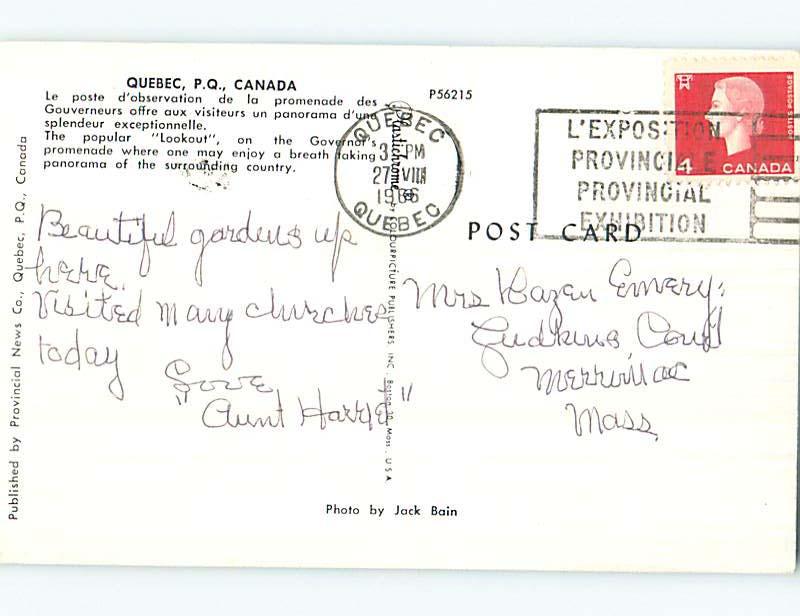 QUEBEC, P.Q., CANADA
Le poste d'observation de la promenade des
Gouverneurs offre aux visiteurs un panorama d'une
splendeur exceptionnelle.
The popular "Lookout", on the Governor's
promenade where one may enjoy a breath taking
panorama of the surrounding country.
P56215
Published by Provincial News Co., Quebec, P.Q., Canada
Beautiful gardens up
here.
Visited many churches
today
Love
"Aunt Harriet"
Plastichrome ®
COLOURPICTURE PUBLISHERS, INC. Boston 30, Mass., U.S.A.
QUEBEC
3 PM
27 VIII
1966
QUEBEC
L'EXPOSITION
PROVINCIALE
PROVINCIAL
EXHIBITION
POSTES POSTAGE
4 CANADA
POST CARD
Mrs Hazen Emery,
Judkins Court
Merrimac
Mass.
Photo by Jack Bain